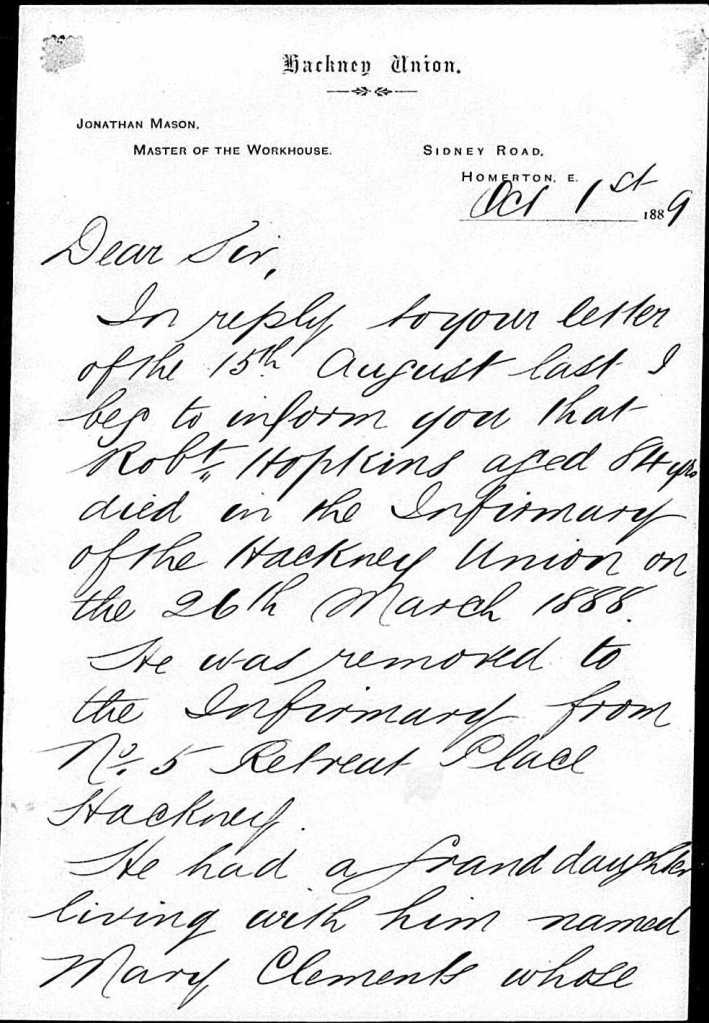 Hackney Union.
JONATHAN MASON,
MASTER OF THE WORKHOUSE.
SIDNEY ROAD,
HOMERTON, E.
Oct 1st 1889
Dear Sir,
In reply to your letter
of the 15th August last I
beg to inform you that
Robt. Hopkins aged 84 yrs
died in the Infirmary
of the Hackney Union on
the 26th March 1888.
He was removed to
the Infirmary from
No. 5 Retreat Place
Hackney.
He had a grand daughter
living with him named
Mary Clements whose